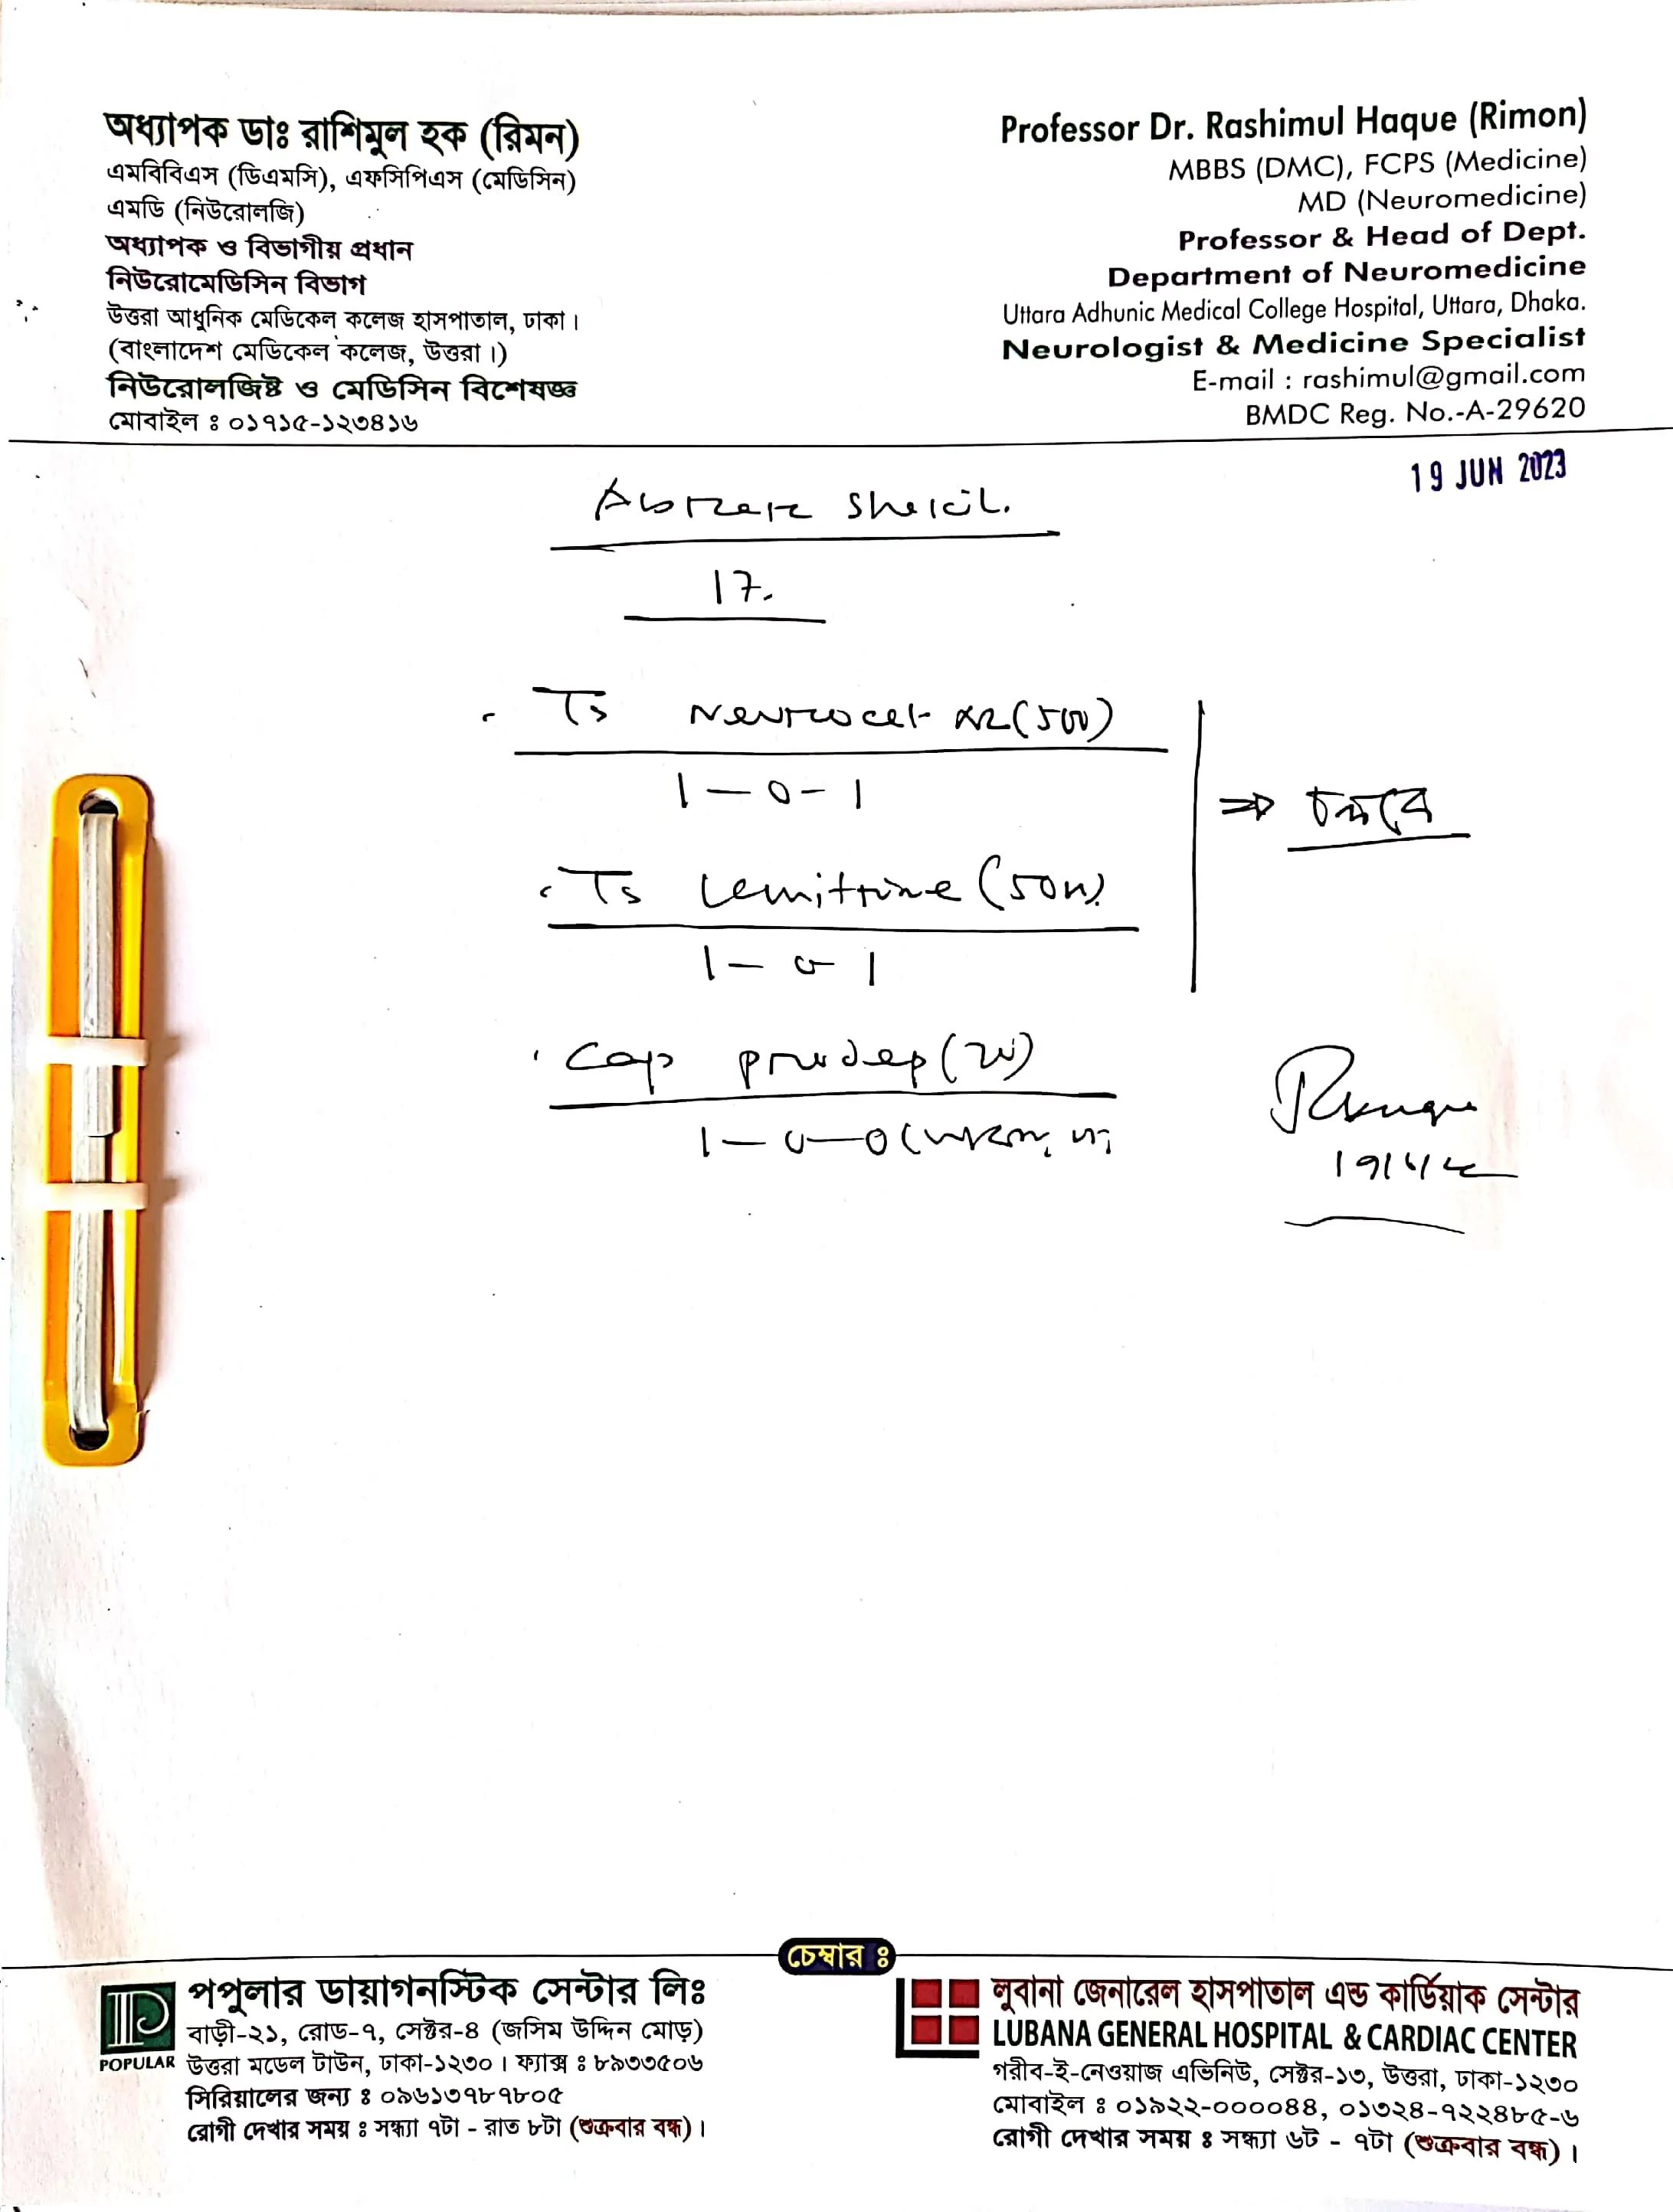 অধ্যাপক ডাঃ রাশিমুল হক (রিমন)
এমবিবিএস (ডিএমসি), এফসিপিএস (মেডিসিন)
এমডি (নিউরোলজি)
অধ্যাপক ও বিভাগীয় প্রধান
নিউরোমেডিসিন বিভাগ
উত্তরা আধুনিক মেডিকেল কলেজ হাসপাতাল, ঢাকা।
(বাংলাদেশ মেডিকেল কলেজ, উত্তরা।)
নিউরোলজিষ্ট ও মেডিসিন বিশেষজ্ঞ
মোবাইল ঃ ০১৭১৫-১২৩৪১৬
Professor Dr. Rashimul Haque (Rimon)
MBBS (DMC), FCPS (Medicine)
MD (Neuromedicine)
Professor & Head of Dept.
Department of Neuromedicine
Uttara Adhunic Medical College Hospital, Uttara, Dhaka.
Neurologist & Medicine Specialist
E-mail : rashimul@gmail.com
BMDC Reg. No.-A-29620
19 JUN 2023
17.
1 - 0 - 1
চলবে
1 - 0 - 1
Cap Prodep (20)
1 - 0 - 0
চেম্বার ঃ
পপুলার ডায়াগনস্টিক সেন্টার লিঃ
বাড়ী-২১, রোড-৭, সেক্টর-৪ (জসিম উদ্দিন মোড়)
POPULAR উত্তরা মডেল টাউন, ঢাকা-১২৩০। ফ্যাক্স ঃ ৮৯৩৩৫০৬
সিরিয়ালের জন্য ঃ ০৯৬১৩৭৮৭৮০৫
রোগী দেখার সময় ঃ সন্ধ্যা ৭টা - রাত ৮টা (শুক্রবার বন্ধ)।
লুবানা জেনারেল হাসপাতাল এন্ড কার্ডিয়াক সেন্টার
LUBANA GENERAL HOSPITAL & CARDIAC CENTER
গরীব-ই-নেওয়াজ এভিনিউ, সেক্টর-১৩, উত্তরা, ঢাকা-১২৩০
মোবাইল ঃ ০১৯২২-০০০০৪৪, ০১৩২৪-৭২২৪৮৫-৬
রোগী দেখার সময় ঃ সন্ধ্যা ৬ট - ৭টা (শুক্রবার বন্ধ)।